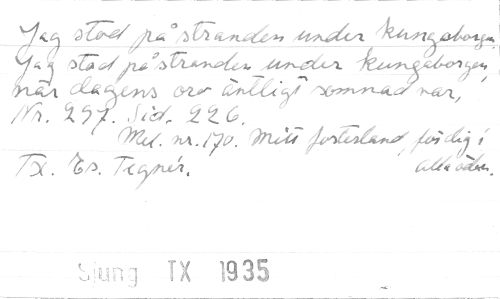 Jag stod på stranden under kungaborgen.
Jag stod på stranden under kungaborgen,
när dagens oro äntligt somnad var,
Nr. 297. Sid. 226.
Mel. nr. 170. Mitt fosterland, för dig i
alla öden.
Tx. Es. Tegnér.
Sjung TX 1935